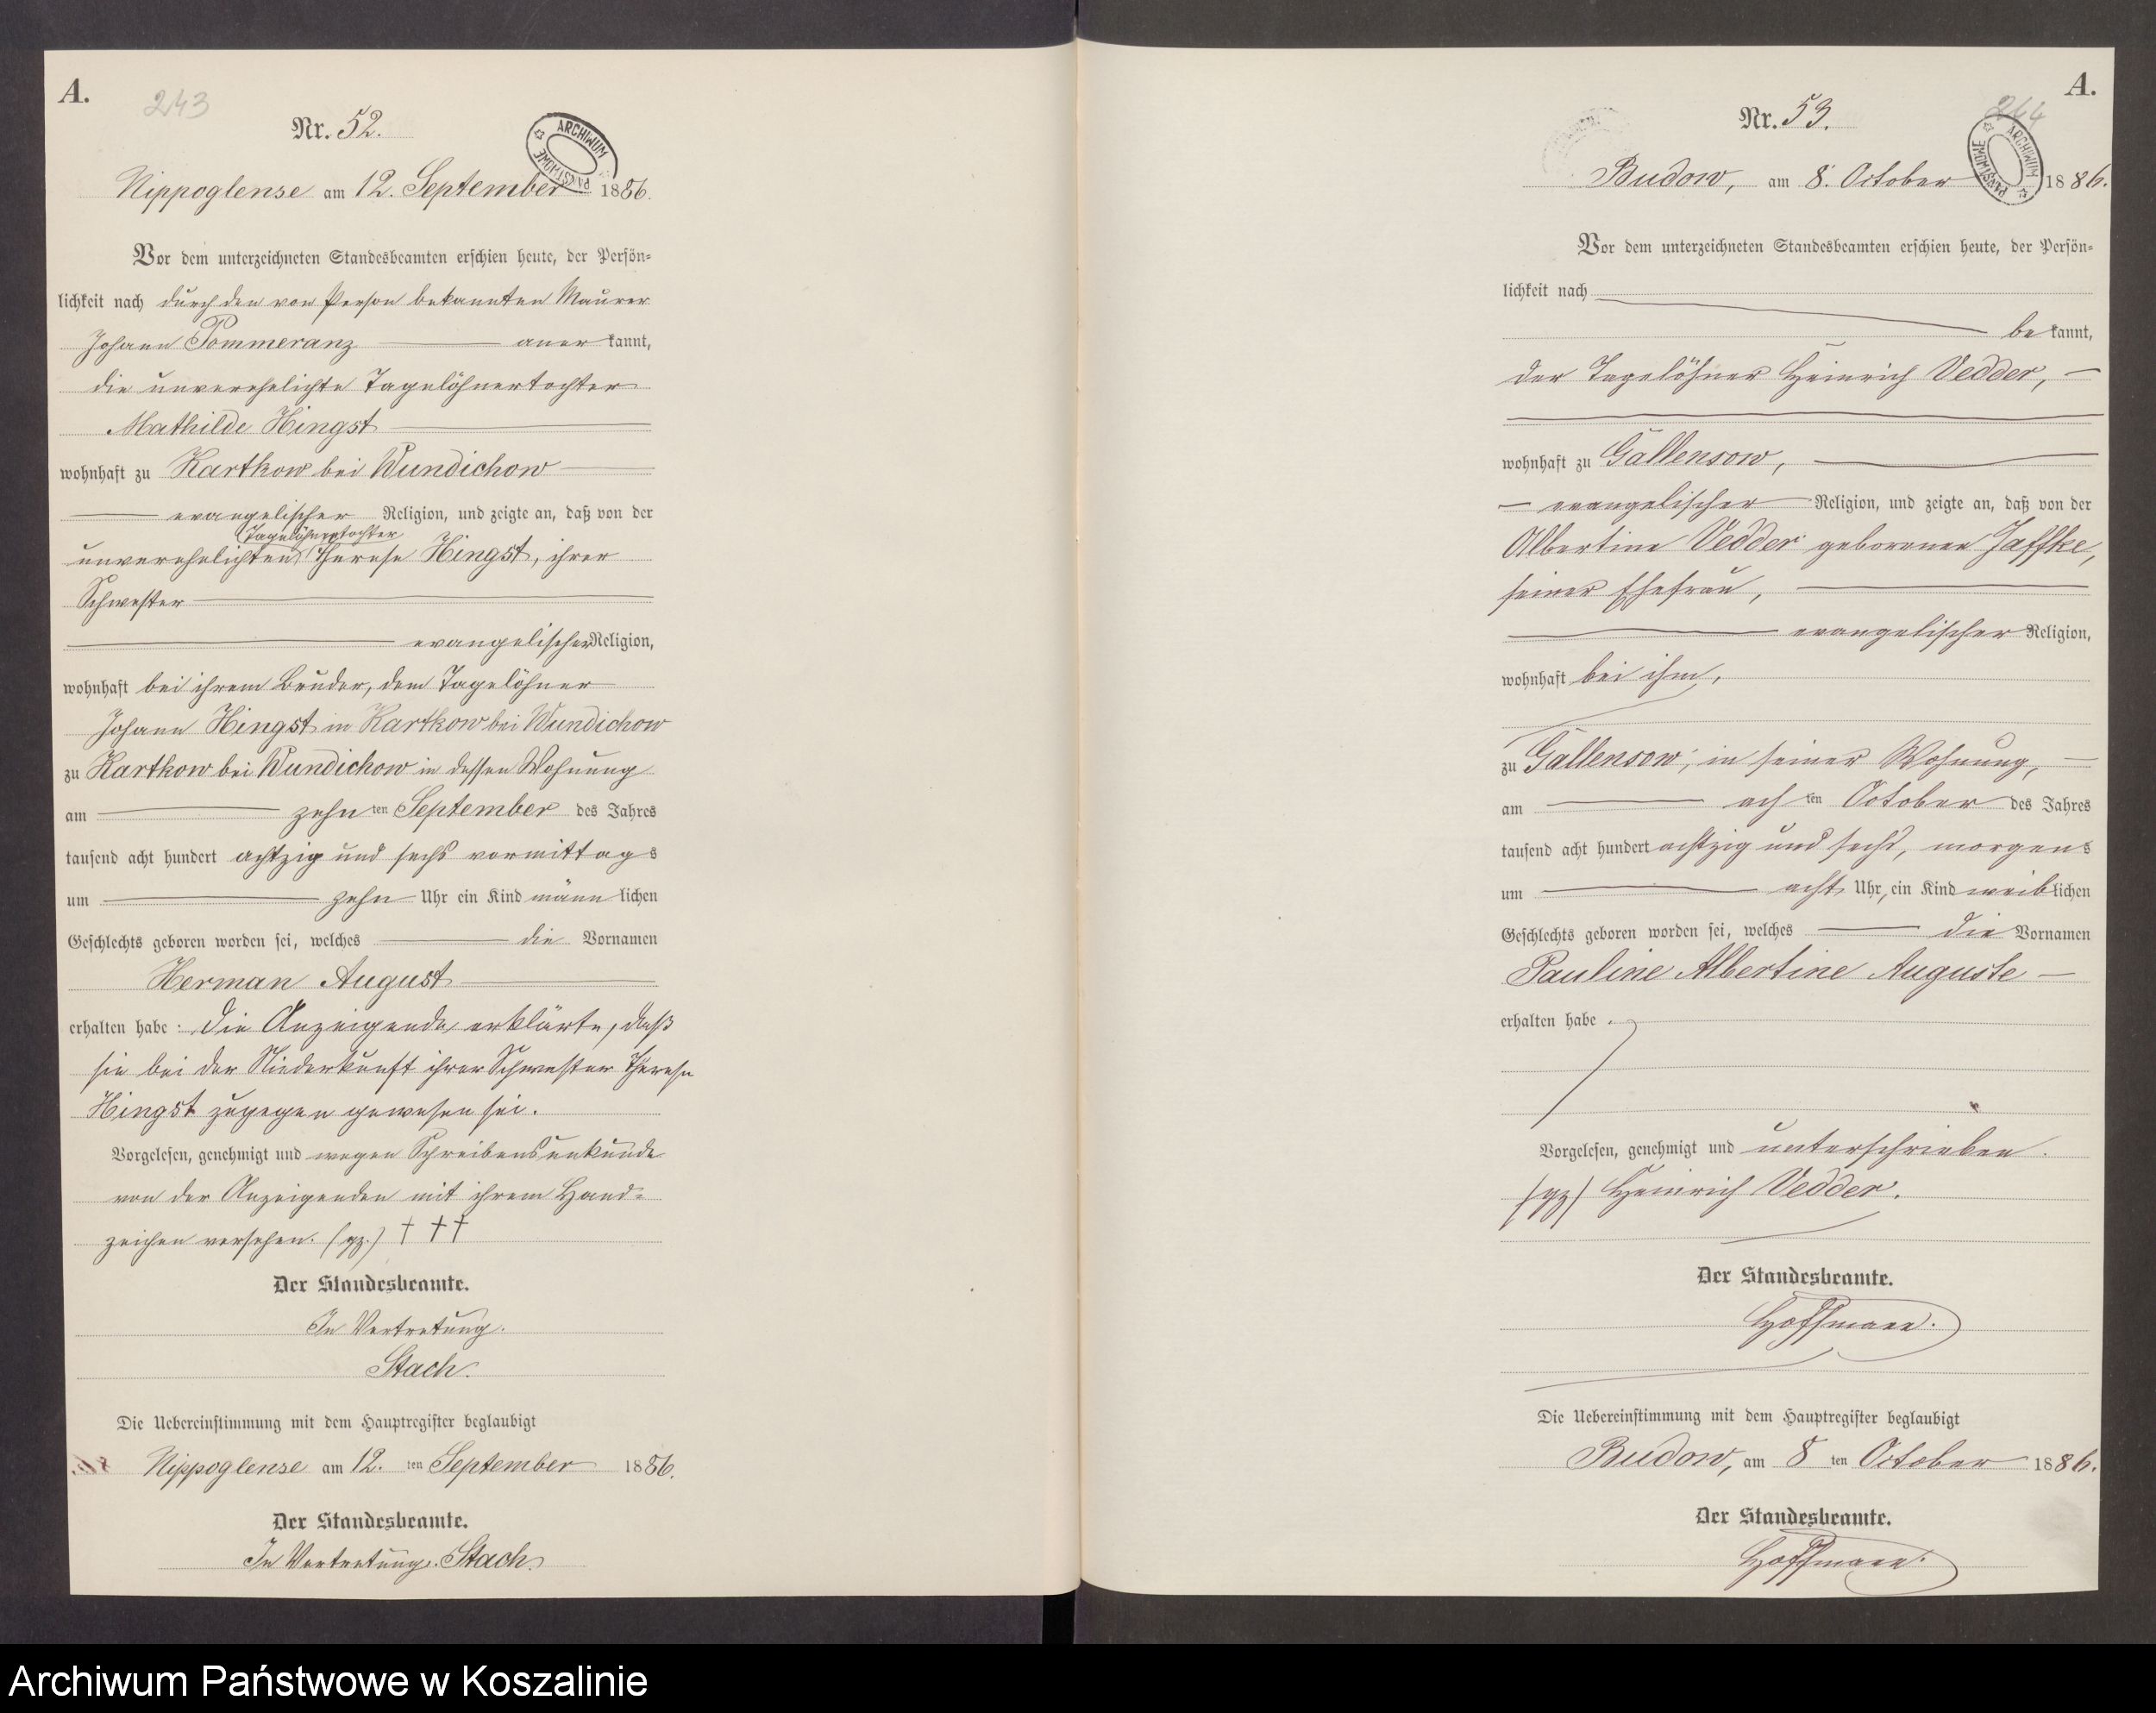 A.
243
Nr. 52.
ARCHIWUM PAŃSTWOWE
Nippoglense am 12. September 1886.
Vor dem unterzeichneten Standesbeamten erschien heute, der Persön-
lichkeit nach durch den von Person bekannten Maurer
Johann Pommeranz aner kannt,
die unverehelichte Tagelöhnertochter
Mathilde Hingst
wohnhaft zu Kartkow bei Wundichow
evangelischer Religion, und zeigte an, daß von der
Tagelöhnertochter
unverehelichten Therese Hingst, ihrer
Schwester
evangelischer Religion,
wohnhaft bei ihrem Bruder, dem Tagelöhner
Johann Hingst in Kartkow bei Wundichow
zu Kartkow bei Wundichow in dessen Wohnung
am zehn ten September des Jahres
tausend acht hundert achtzig und sechs vormittags
um zehn Uhr ein Kind männ lichen
Geschlechts geboren worden sei, welches die Vornamen
Herman August
erhalten habe : Die Anzeigende erklärte, daß
sie bei der Niederkunft ihrer Schwester Therese
Hingst zugegen gewesen sei.
Vorgelesen, genehmigt und wegen Schreibensunkunde
von der Anzeigenden mit ihrem Hand-
zeichen versehen. (gz.) † † †
Der Standesbeamte.
In Vertretung.
Stach.
Die Uebereinstimmung mit dem Hauptregister beglaubigt
Nippoglense am 12. ten September 1886.
Der Standesbeamte.
In Vertretung. Stach.
A.
244
Nr. 53.
ARCHIWUM PAŃSTWOWE
Budow, am 8. October 1886.
Vor dem unterzeichneten Standesbeamten erschien heute, der Persön-
lichkeit nach
be kannt,
der Tagelöhner Heinrich Vedder,
wohnhaft zu Gallensow,
evangelischer Religion, und zeigte an, daß von der
Albertine Vedder geborenen Jaffke,
seiner Ehefrau,
evangelischer Religion,
wohnhaft bei ihm,
zu Gallensow, in seiner Wohnung,
am ach ten October des Jahres
tausend acht hundert achtzig und sechs, morgens
um acht Uhr, ein Kind weib lichen
Geschlechts geboren worden sei, welches die Vornamen
Pauline Albertine Auguste
erhalten habe .
Vorgelesen, genehmigt und unterschrieben.
(gz) Heinrich Vedder.
Der Standesbeamte.
Hoffmann.
Die Uebereinstimmung mit dem Hauptregister beglaubigt
Budow, am 8 ten October 1886.
Der Standesbeamte.
Hoffmann.
Archiwum Państwowe w Koszalinie